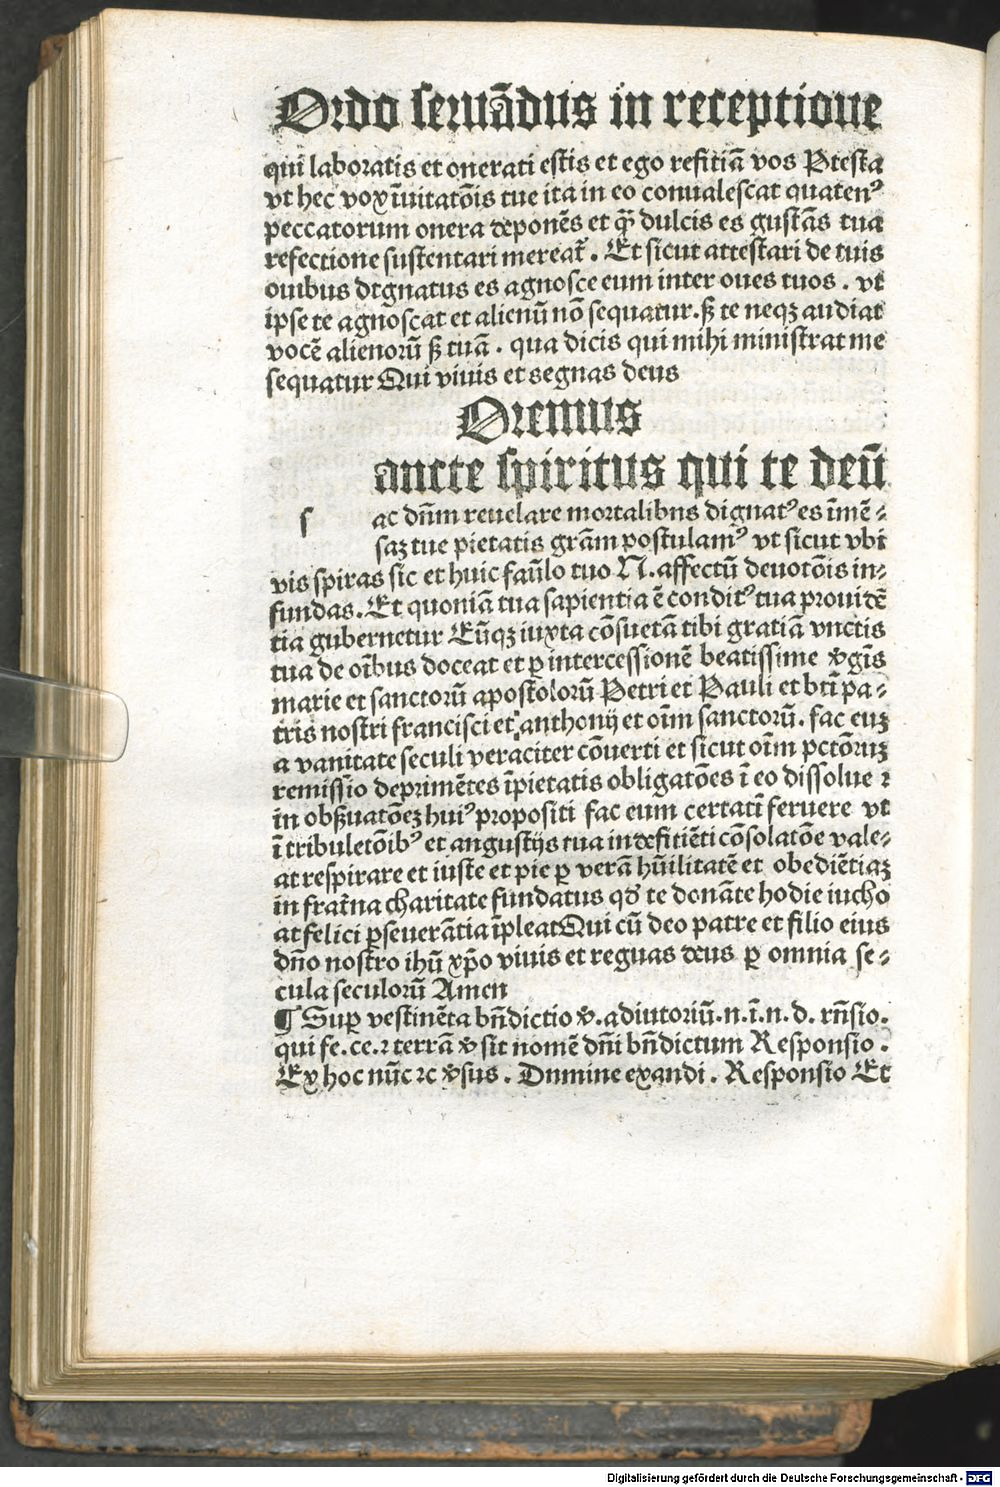 Ordo seruãdus in receptione
qui laboratis et onerati estis et ego refitiã vos Presta
vt hec vox ĩuitatõis tue ita in eo conualescat quatenꝰ
peccatorum onera deponẽs et q̃ꝫ dulcis es gustãs tua
refectione sustentari mereat᷑. Et sicut attestari de tuis
ouibus dignatus es agnosce eum inter oues tuos. vt
ipse te agnoscat et alienũ nõ sequatur. sꝫ te neqꝫ audiat
vocẽ alienorũ sꝫ tuã. qua dicis qui mihi ministrat me
sequatur Qui viuis et segnas deus
Oremus
ancte spiritus qui te deũ
s ac dñm reuelare mortalibns dignatꝰ es ĩmẽ-
saꝫ tue pietatis grãm postulamꝰ vt sicut vbi
vis spiras sic et huic faũlo tuo N. affectũ deuotõis in-
fundas. Et quoniã tua sapientia ẽ conditꝰ tua prouidẽ
tia gubernetur Eũqꝫ iuxta cõsuetã tibi gratiã vnctis
tua de oĩbus doceat et ꝑ intercessionẽ beatissime v̾gĩs
marie et sanctorũ apostolorũ Petri et Pauli et bti̅ pa-
tris nostri francisci et anthonij et oĩm sanctorũ. fac euꝫ
a vanitate seculi veraciter cõuerti et sicut oĩm pctõruꝫ
remissio deprimẽtes ĩpietatis obligatões ĩ eo dissolue ꝛ
in obßuatõeꝫ huiꝰ propositi fac eum certati̅ feruere vt
ĩ tribuletõibꝰ et angustijs tua indefitiẽti cõsolatõe vale-
at respirare et iuste et pie ꝑ verã hũilitatẽ et obediẽtiaꝫ
in frat̃na charitate fundatus qđ te donãte hodie iucho
at felici ꝑseuerãtia ĩpleat Qui cũ deo patre et filio eius
dño nostro ihũ xp̃o viuis et regnas deus ꝑ omnia se-
cula seculorũ Amen
¶ Suꝑ vestimẽta bñdictio v̾. adiutoriũ. n. ĩ. n. d. rñsio.
qui fe. ce. ꝛ terrã v̾ sit nomẽ dñi bñdictum Responsio.
Ex hoc nũc ꝛc v̾sus. Dnmine exandi. Responsio Et
Digitalisierung gefördert durch die Deutsche Forschungsgemeinschaft - DFG